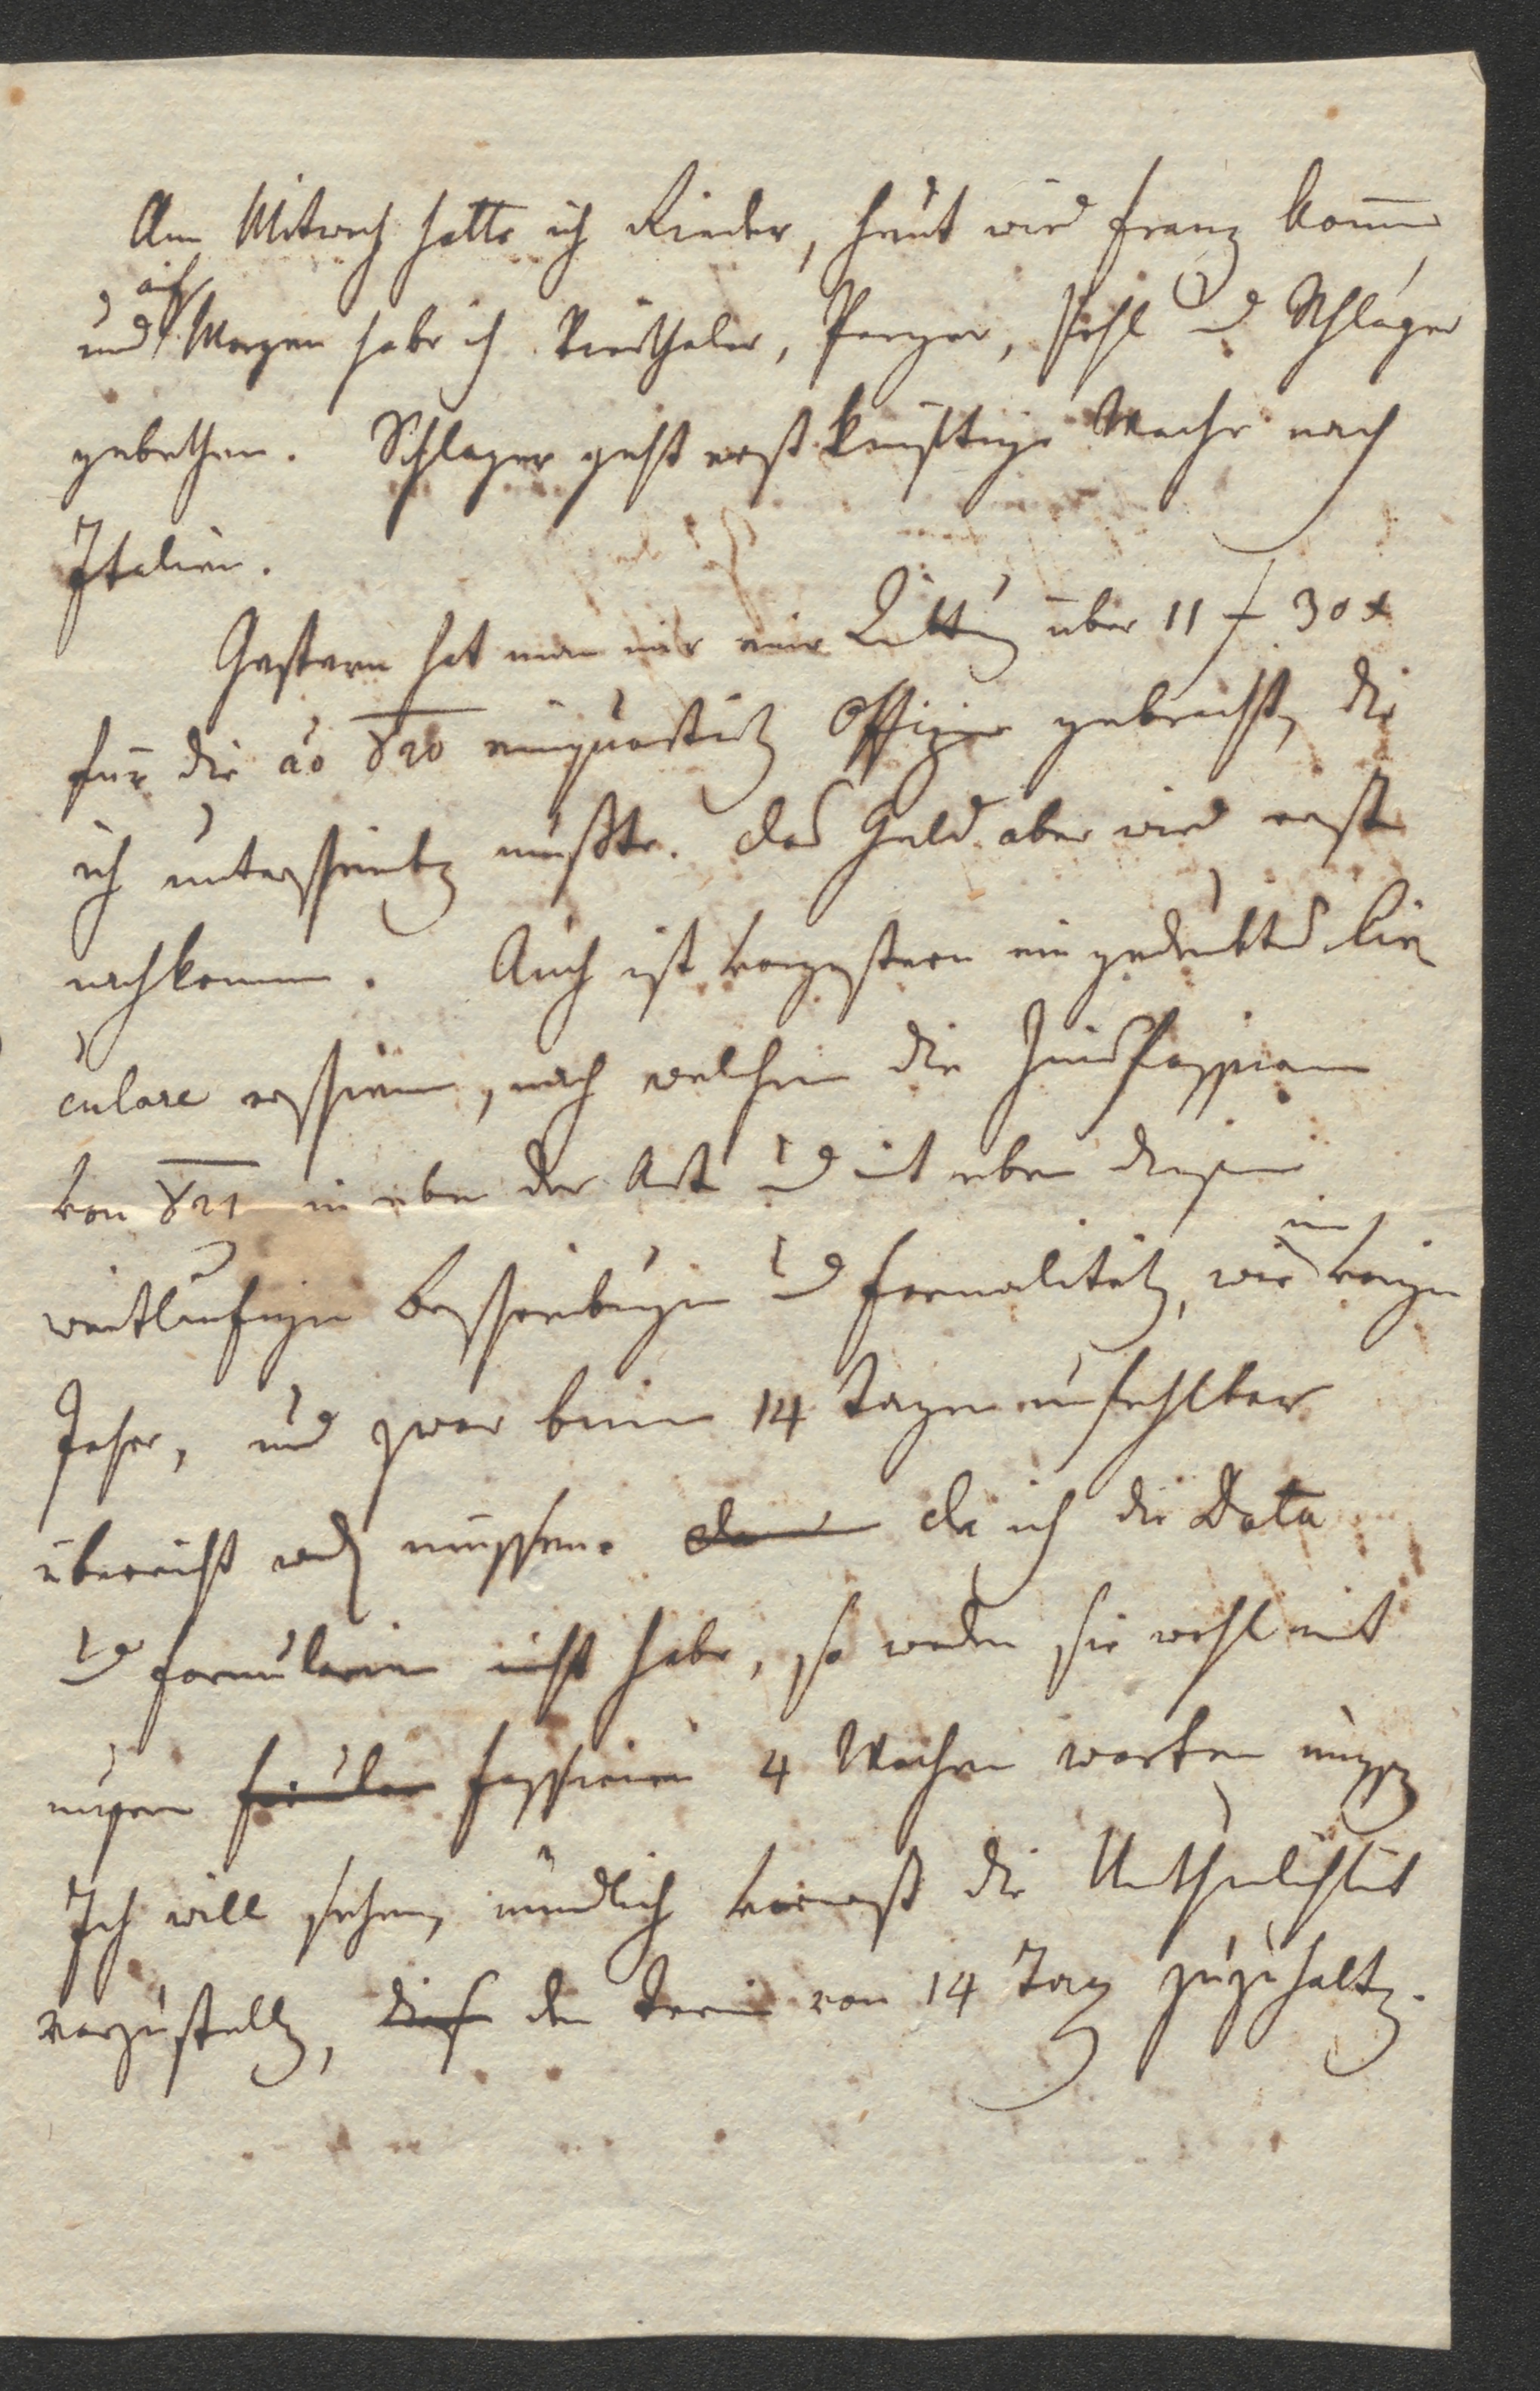 Am Mitwoch hatte ich Rieder, heut wird Franz komen
und auf Morgen habe ich Vierthaler, Penger, Pohl und Schlager
gebethen. Schlager geht erst künftige Woche nach
Italien.
Gestern hat man mir eine Quittung über 11 f 30 x
für die ao 820 einquartirten Offizire gebracht, die
ich unterschreiben mußte. Das Geld aber wird erst
nachkommen. Auch ist vorgestern ein gedrucktes Cir
culare erschienen, nach welchem die HausFassionen
von 821 in eben der Art und mit eben diesen
weitläufigen Beschreibungen und Formalitäten, wie im vorigen
Jahre, und zwar binnen 14 Tagen unfehlbar
überreicht werden müssen. Da ich die Data
und Formularien nicht habe, so werden sie wohl mit
unsern Fassionen 4 Wochen warten müssen
Ich will sehen, mündlich die Unthunlichkeit
vorzustellen, den Termin von 14 Tagen zuzuhalten.